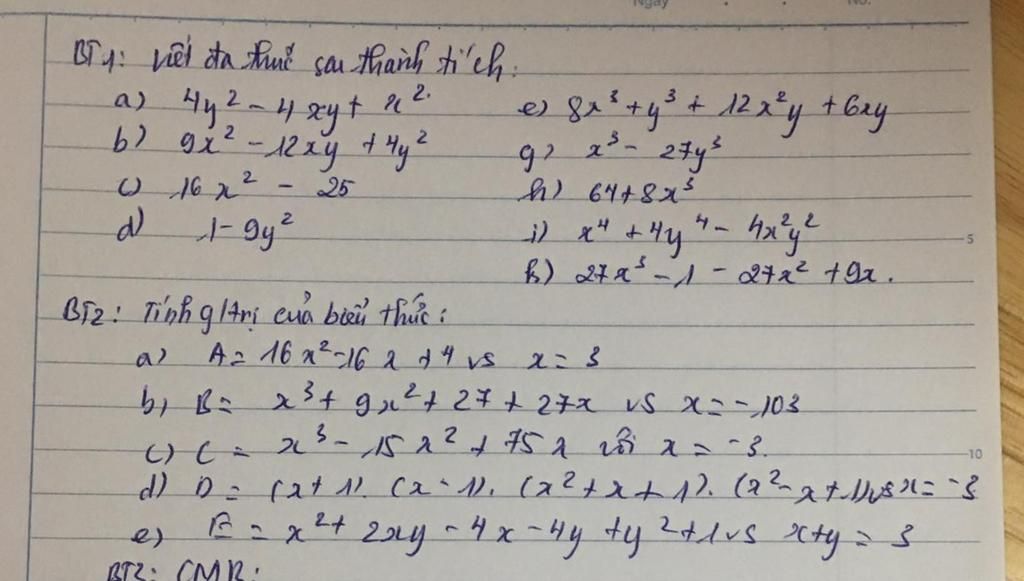 Ngày No.
BT1: Viết đa thức sau thành tích:
a) 4y² - 4xy + x²
b) 9x² - 12xy + 4y²
c) 16x² - 25
d) 1 - 9y²
e) 8x³ + y³ + 12x²y + 6xy
g) x³ - 27y³
h) 64 + 8x³
i) x⁴ + 4y⁴ - 4x²y²
k) 27x³ - 1 - 27x² + 9x.
5
BT2: Tính g/trị của biểu thức:
a) A = 16x² - 16x + 4 vs x = 3
b) B = x³ + 9x² + 27 + 27x vs x = -103
c) C = x³ - 15x² + 75x với x = -3.
10
d) D = (x + 1). (x - 1). (x² + x + 1). (x² - x + 1) vs x = -3
e) E = x² + 2xy - 4x - 4y + y² + 1 vs x + y = 3
CMR: